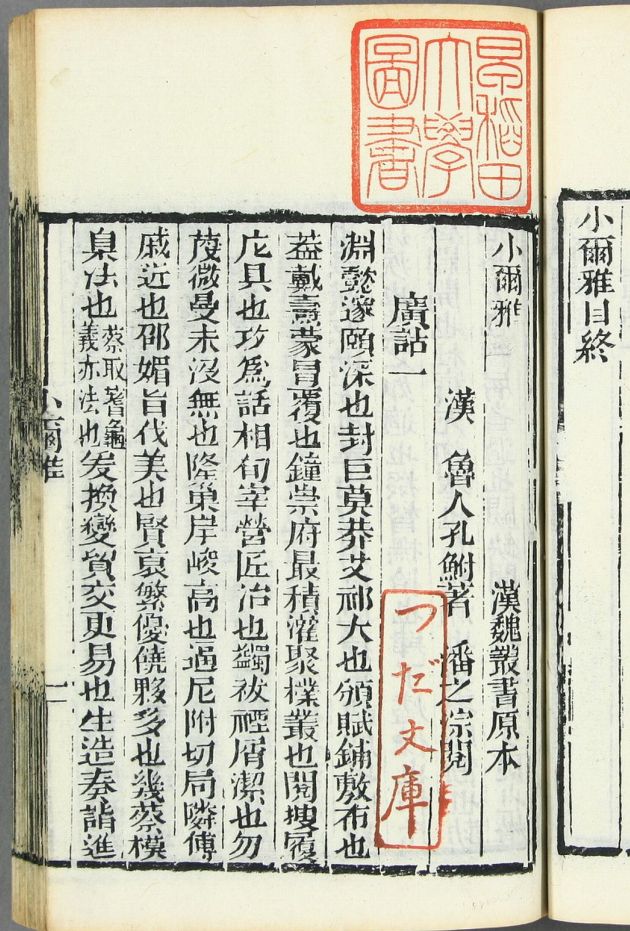 小爾雅目終
早稻田
大學
圖書
小爾雅 漢魏叢書原本
漢 魯人孔鮒著 潘之淙閱
つだ文庫
廣詁一
淵懿邃頤深也封巨莫莽艾祁大也頒賦鋪敷布也
蓋戴燾蒙冒覆也鐘崇府最積灌聚樸叢也閱搜履
庀具也攻爲話相旬宰營匠治也蠲祓禋屑潔也勿
蔑微曼末沒無也隆巢岸峻高也逼尼附切局隣傅
戚近也邵媚旨伐美也賢裒繁優饒夥多也幾蔡模
臬法也蔡取蓍龜義亦法也爰換變貿交更易也生造奏詣進
小爾雅 一